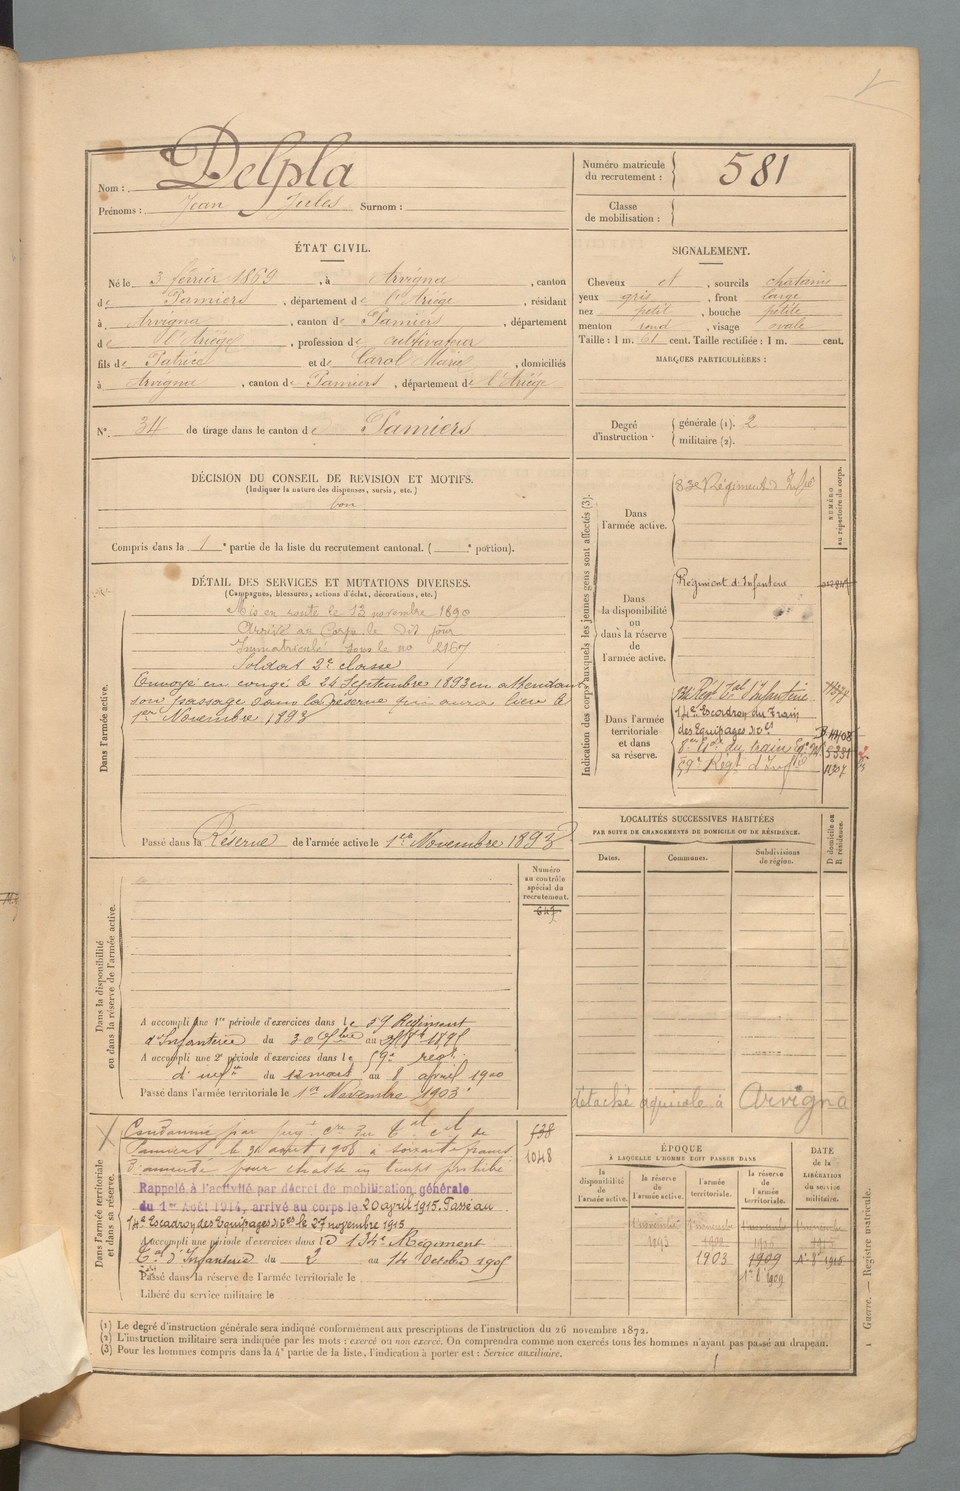 Nom : Delpla
Prénoms : Jean Jules Surnom :
Numéro matricule du recrutement : 581
Classe de mobilisation :
ÉTAT CIVIL.
Né le 3 février 1869, à Arvigna, canton
de Pamiers, département de l'Ariège, résidant
à Arvigna, canton de Pamiers, département
de l'Ariège, profession de cultivateur
fils de Patrice et de Carol Marie, domiciliés
à Arvigna, canton de Pamiers, département de l'Ariège
N° 34 de tirage dans le canton de Pamiers
SIGNALEMENT.
Cheveux et, sourcils châtains
yeux gris, front large
nez petit, bouche petite
menton rond, visage ovale
Taille : 1 m. 61 cent. Taille rectifiée : 1 m. cent.
MARQUES PARTICULIÈRES :
Degré d'instruction. générale (1). 2
militaire (2).
DÉCISION DU CONSEIL DE REVISION ET MOTIFS.
(Indiquer la nature des dispenses, sursis, etc.)
bon
Compris dans la 1e partie de la liste du recrutement cantonal. ( e portion).
DÉTAIL DES SERVICES ET MUTATIONS DIVERSES.
(Campagnes, blessures, actions d'éclat, décorations, etc.)
Dans l'armée active.
Mis en route le 13 novembre 1890
Arrivé au Corps le dit jour
Immatriculé sous le no 2167
Soldat 2e classe
Envoyé en congé le 24 Septembre 1893 en attendant
son passage dans la réserve qui aura lieu le
1er Novembre 1893
Passé dans la Réserve de l'armée active le 1er Novembre 1893
Indication des corps auxquels les jeunes gens sont affectés (3).
NUMÉRO au répertoire du corps.
Dans l'armée active.
83e Régiment d'Infie
Dans la disponibilité ou dans la réserve de l'armée active.
Régiment d'Infanterie
Dans l'armée territoriale et dans sa réserve.
Régt Tal d'Infanterie
14e Escadron du Train
des Equipages Mres
8e Eson du train Eq. Mil. 5381
59e Régt d'Inftie
LOCALITÉS SUCCESSIVES HABITÉES
PAR SUITE DE CHANGEMENTS DE DOMICILE OU DE RÉSIDENCE.
Dates. Communes. Subdivisions de région.
D domicile ou R résidence.
détaché agricole à Arvigna
Dans la disponibilité ou dans la réserve de l'armée active.
Numéro au contrôle spécial du recrutement.
647
A accompli une 1re période d'exercices dans le 59 Régiment
d'Infanterie du 30 au 1895
A accompli une 2e période d'exercices dans le 59e regt
d'infie du 12 mars au 8 avril 1900
Passé dans l'armée territoriale le 1er Novembre 1903
Dans l'armée territoriale et dans sa réserve.
538
1048
Condamné par jugt du Tal de
Pamiers le 31 août 1908 à soixante francs
d'amende pour chasse en temps prohibé
Rappelé à l'activité par décret de mobilisation générale
du 1er Août 1914, arrivé au corps le 20 avril 1915. Passé au
14e Escadron des Equipages Mres le 27 novembre 1915
A accompli une période d'exercices dans le 134e Régiment
Tal d'Infanterie du 2 au 14 Octobre 1905
Passé dans la réserve de l'armée territoriale le
Libéré du service militaire le
ÉPOQUE
À LAQUELLE L'HOMME DOIT PASSER DANS
la disponibilité de l'armée active.
la réserve de l'armée active.
l'armée territoriale.
la réserve de l'armée territoriale.
DATE de la LIBÉRATION du service militaire.
1 novembre 1 novembre 1 novembre 1 novembre
1893
1903 1909
1er 8bre 1909
(1) Le degré d'instruction générale sera indiqué conformément aux prescriptions de l'instruction du 26 novembre 1872.
(2) L'instruction militaire sera indiquée par les mots : exercé ou non exercé. On comprendra comme non exercés tous les hommes n'ayant pas passé au drapeau.
(3) Pour les hommes compris dans la 4e partie de la liste, l'indication à porter est : Service auxiliaire.
1 Guerre. — Registre matricule.